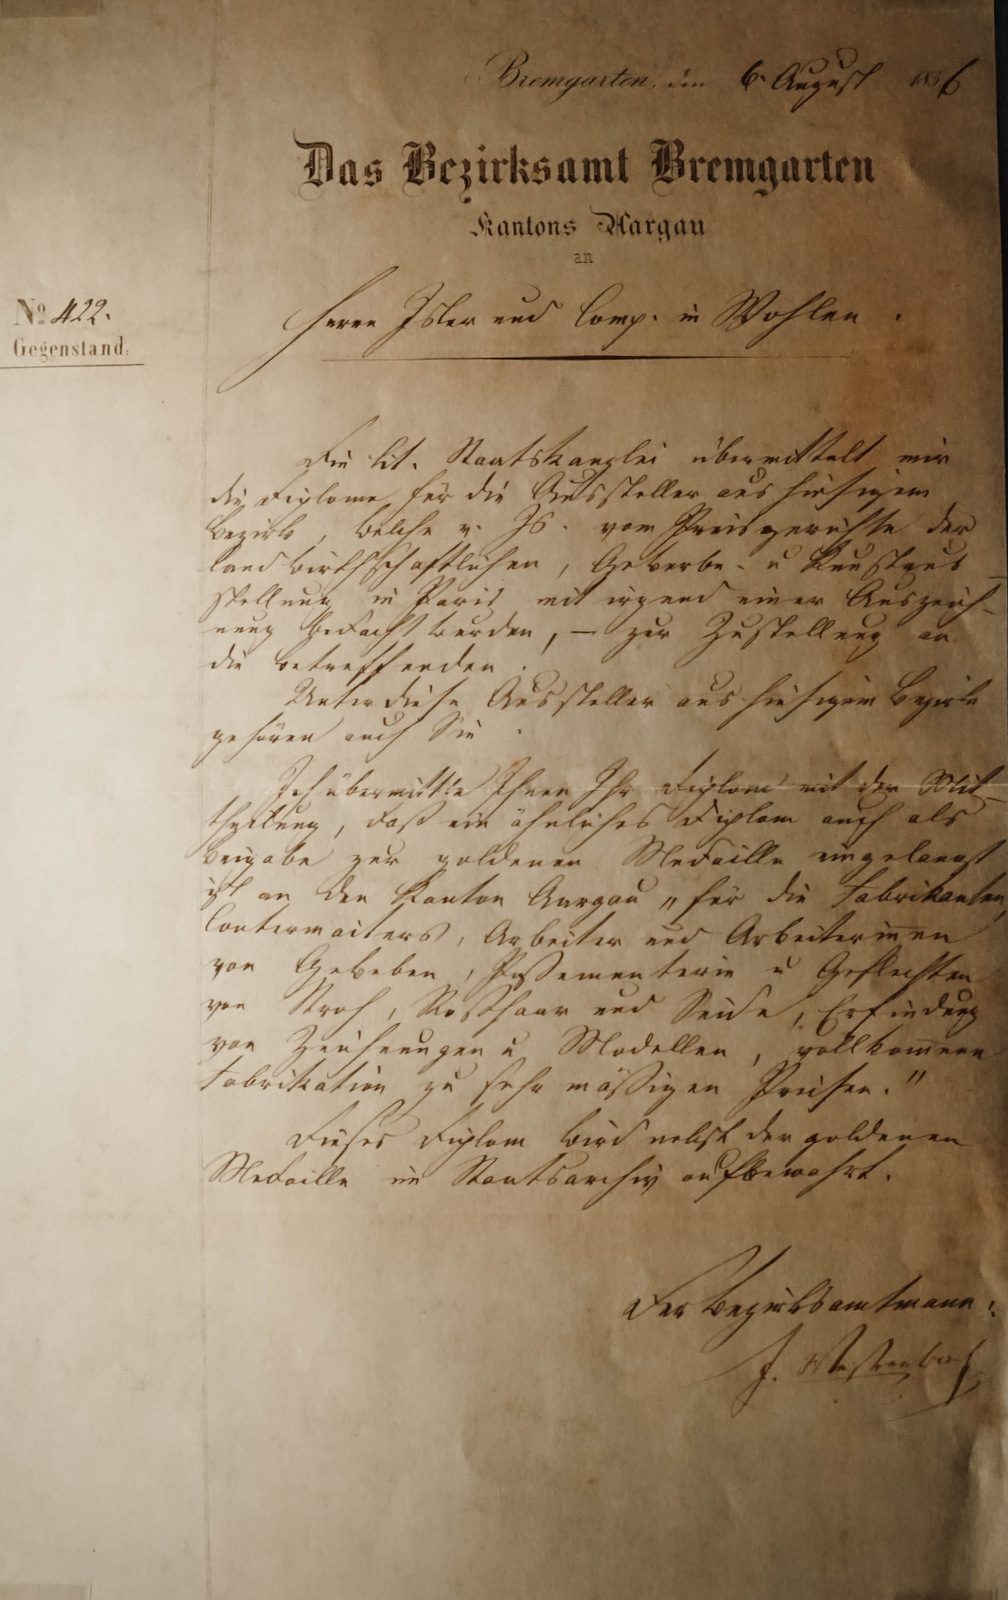 Bremgarten, den 6. August 1856
Das Bezirksamt Bremgarten
Kantons Aargau
an
Herrn Isler und Comp. in Wohlen.
No 422.
Gegenstand.
Die tit. Staatskanzlei übermittelt mir
die Diplome für die Aussteller aus hiesigem
Bezirk, welche v. Js. vom Preisgerichte der
landwirthschaftlichen, Gewerbe- u Kunstaus-
stellung in Paris mit irgend einer Auszeich-
nung bedacht wurden, – zur Zustellung an
die betreffenden.
Unter diese Aussteller aus hiesigem Bezirke
gehören auch Sie.
Ich übermittle Ihnen Ihr Diplom mit der Mit-
theilung, daß ein ähnliches Diplom auch als
Beigabe zur goldenen Medaille eingelangt
ist an den Kanton Aargau „für die Fabrikanten,
Contermaiters, Arbeiter und Arbeiterinen
von Geweben, Passementerie u Geflechten
von Stroh, Roßhaar und Seide, Erfindung
von Zeichnungen u Modellen, vollkomene
Fabrikation zu sehr mäßigen Preisen."
Dieses Diplom wird nebst der goldenen
Medaille im Staatsarchiv aufbewahrt.
Der Bezirksamtmann:
J.